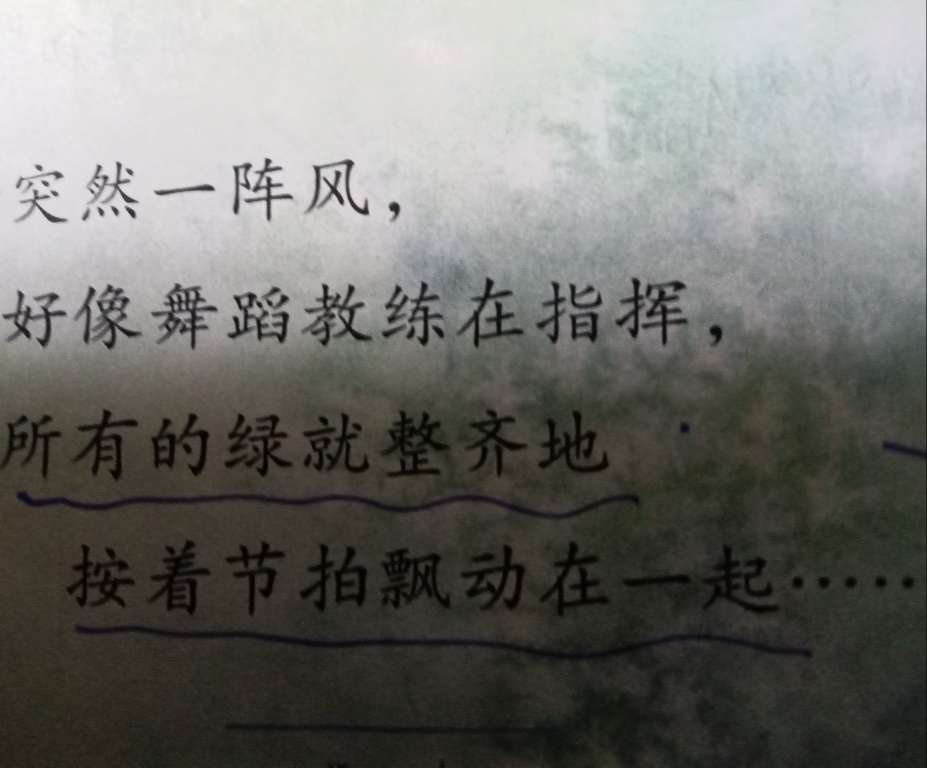 突然一阵风，
好像舞蹈教练在指挥，
所有的绿就整齐地
按着节拍飘动在一起……